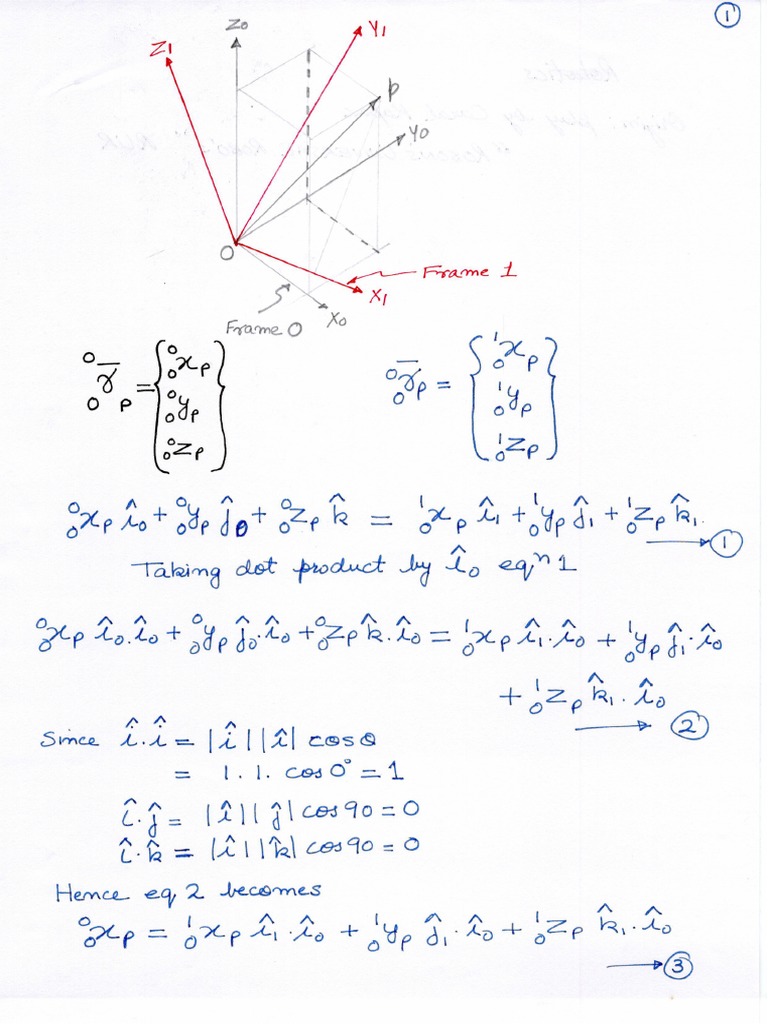 ①
Z₀
Y₁
Z₁
P
Y₀
O
Frame 1
X₁
X₀
Frame O
⁰₀r̄_P = {⁰₀x_P
⁰₀y_P
⁰₀z_P}
⁰₀r̄_P = {¹₀x_P
¹₀y_P
¹₀z_P}
⁰₀x_P î₀ + ⁰₀y_P ĵ₀ + ⁰₀z_P k̂ = ¹₀x_P î₁ + ¹₀y_P ĵ₁ + ¹₀z_P k̂₁.
→ ①
Taking dot product by î₀ eqⁿ 1
⁰₀x_P î₀.î₀ + ⁰₀y_P ĵ₀.î₀ + ⁰₀z_P k̂.î₀ = ¹₀x_P î₁.î₀ + ¹₀y_P ĵ₁.î₀
+ ¹₀z_P k̂₁.î₀
→ ②
Since î.î = |î||î| cosθ
= 1.1. cos0° = 1
î.ĵ = |î||ĵ| cos90 = 0
î.k̂ = |î||k̂| cos90 = 0
Hence eq 2 becomes
⁰₀x_P = ¹₀x_P î₁.î₀ + ¹₀y_P ĵ₁.î₀ + ¹₀z_P k̂₁.î₀
→ ③